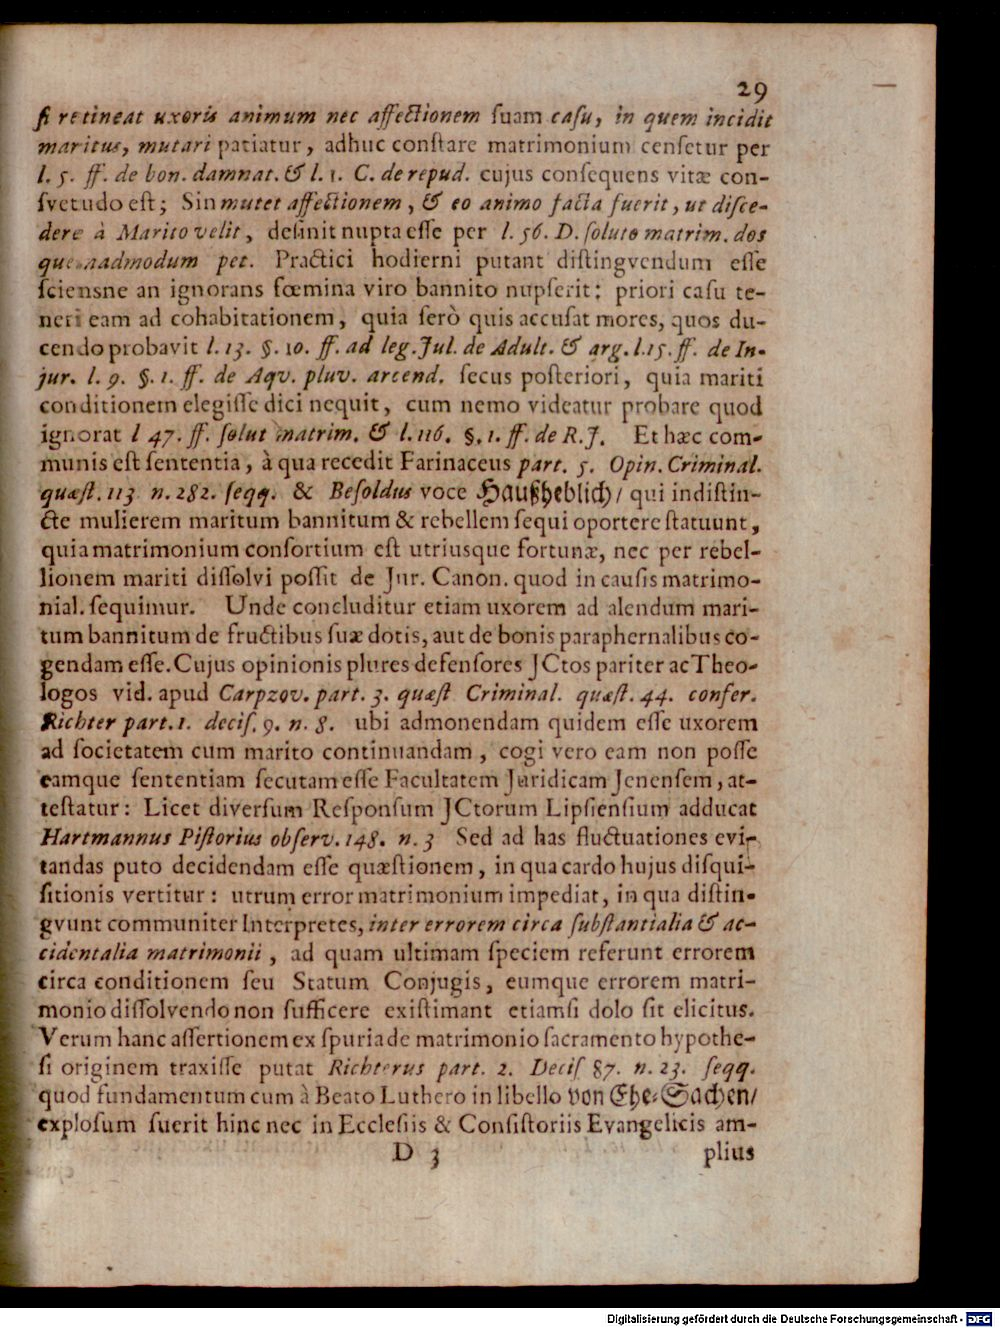 29
ſi retineat uxoris animum nec affectionem ſuam caſu, in quem incidit
maritus, mutari patiatur, adhuc conſtare matrimonium cenſetur per
l. 5. ff. de bon. damnat. & l. 1. C. de repud. cujus conſequens vitæ con-
ſvetudo eſt; Sin mutet affectionem, & eo animo facta fuerit, ut diſce-
dere à Marito velit, deſinit nupta eſſe per l. 56. D. ſoluto matrim. dos
quemadmodum pet. Practici hodierni putant diſtingvendum eſſe
ſciensne an ignorans fœmina viro bannito nupſerit: priori caſu te-
neri eam ad cohabitationem, quia ſerò quis accuſat mores, quos du-
cendo probavit l. 13. §. 10. ff. ad leg. Jul. de Adult. & arg. l. 15. ff. de In-
jur. l. 9. §. 1. ff. de Aqv. pluv. arcend. ſecus poſteriori, quia mariti
conditionem elegiſſe dici nequit, cum nemo videatur probare quod
ignorat l 47. ff. ſolut matrim. & l. 116. §. 1. ff. de R. J. Et hæc com-
munis eſt ſententia, à qua recedit Farinaceus part. 5. Opin. Criminal.
quæſt. 113 n. 282. ſeqq. & Beſoldus voce Haußheblich/ qui indiſtin-
cte mulierem maritum bannitum & rebellem ſequi oportere ſtatuunt,
quia matrimonium conſortium eſt utriusque fortunæ, nec per rebel-
lionem mariti diſſolvi poſſit de Jur. Canon. quod in cauſis matrimo-
nial. ſequimur. Unde concluditur etiam uxorem ad alendum mari-
tum bannitum de fructibus ſuæ dotis, aut de bonis paraphernalibus co-
gendam eſſe. Cujus opinionis plures defenſores JCtos pariter ac Theo-
logos vid. apud Carpzov. part. 3. quæſt Criminal. quæſt. 44. confer.
Richter part. 1. deciſ. 9. n. 8. ubi admonendam quidem eſſe uxorem
ad ſocietatem cum marito continuandam, cogi vero eam non poſſe
eamque ſententiam ſecutam eſſe Facultatem Juridicam Jenenſem, at-
teſtatur: Licet diverſum Reſponſum JCtorum Lipſienſium adducat
Hartmannus Piſtorius obſerv. 148. n. 3 Sed ad has fluctuationes evi-
tandas puto decidendam eſſe quæſtionem, in qua cardo hujus diſqui-
ſitionis vertitur: utrum error matrimonium impediat, in qua diſtin-
gvunt communiter Interpretes, inter errorem circa ſubſtantialia & ac-
cidentalia matrimonii, ad quam ultimam ſpeciem referunt errorem
circa conditionem ſeu Statum Conjugis, eumque errorem matri-
monio diſſolvendo non ſufficere exiſtimant etiamſi dolo ſit elicitus.
Verum hanc aſſertionem ex ſpuria de matrimonio ſacramento hypothe-
ſi originem traxiſſe putat Richterus part. 2. Deciſ 87. n. 23. ſeqq.
quod fundamentum cum à Beato Luthero in libello von Ehe-Sachen/
exploſum fuerit hinc nec in Eccleſiis & Conſiſtoriis Evangelicis am-
D 3 plius
Digitalisierung gefördert durch die Deutsche Forschungsgemeinschaft - DFG